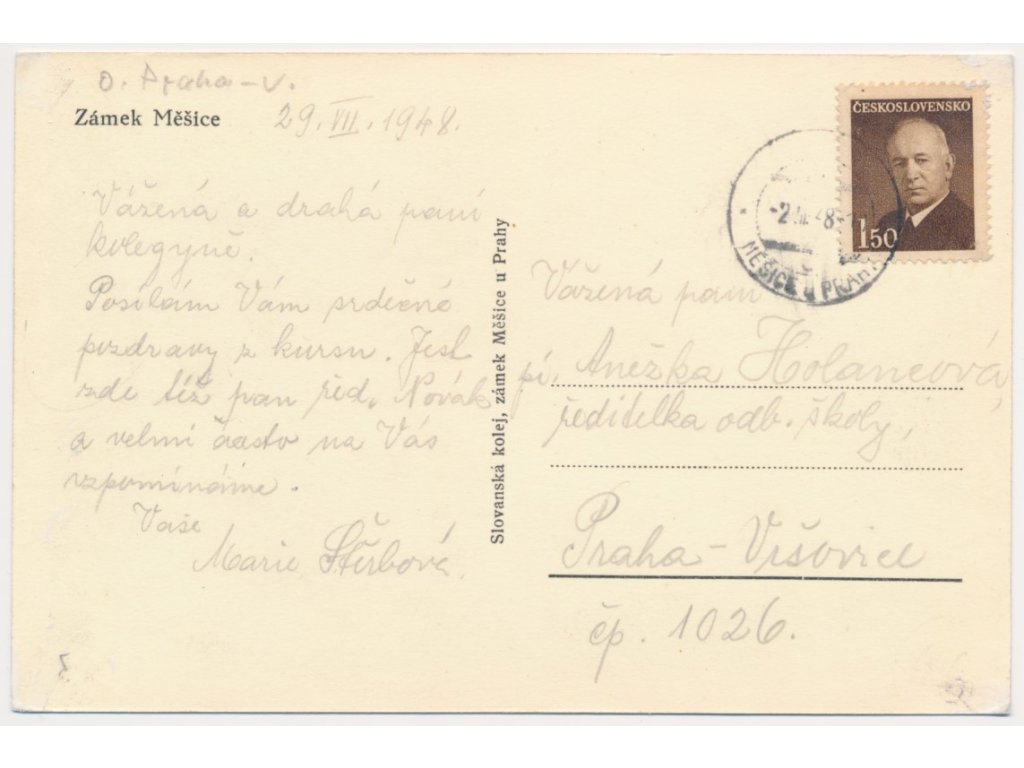 o. Praha-V.
Zámek Měšice
29. VII. 1948.
Vážená a drahá paní
kolegyně.
Posílám Vám srdečné
pozdravy z kursu. Jest
zde též pan řed. Novák
a velmi často na Vás
vzpomínáme.
Vaše
Marie Štěrbová.
Slovanská kolej, zámek Měšice u Prahy
ČESKOSLOVENSKO
150
MĚŠICE U PRAHY
Vážená paní
pí. Anežka Holancová,
ředitelka odb. školy,
Praha-Vršovice
čp. 1026.